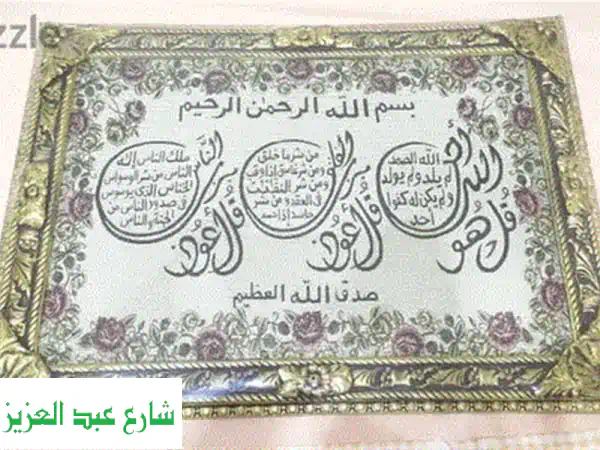 zzle
بسم الله الرحمن الرحيم
قل هو الله أحد
الله الصمد
لم يلد ولم يولد
ولم يكن له كفوا
أحد
قل أعوذ برب الفلق
من شر ما خلق
ومن شر غاسق إذا وقب
ومن شر النفاثات
في العقد ومن شر
حاسد إذا حسد
قل أعوذ برب الناس
ملك الناس إله
الناس من شر الوسواس
الخناس الذي يوسوس
في صدور الناس من
الجنة والناس
صدق الله العظيم
شارع عبد العزيز